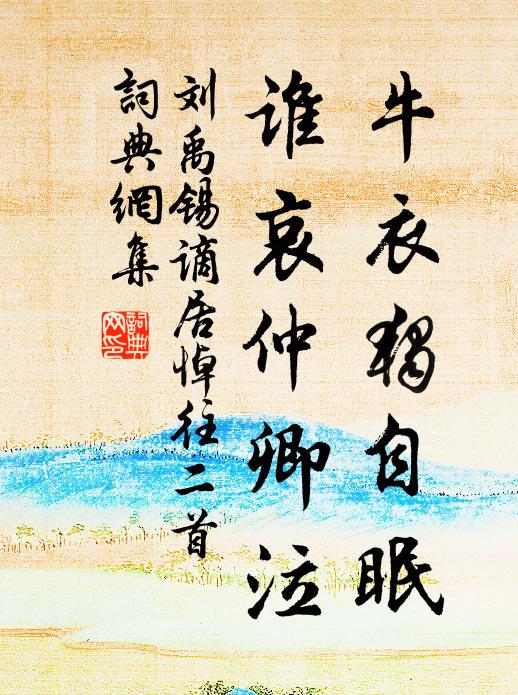 牛衣獨自眠
谁哀仲卿泣
刘禹锡谪居悼往二首
詞典網集
詞典
网印